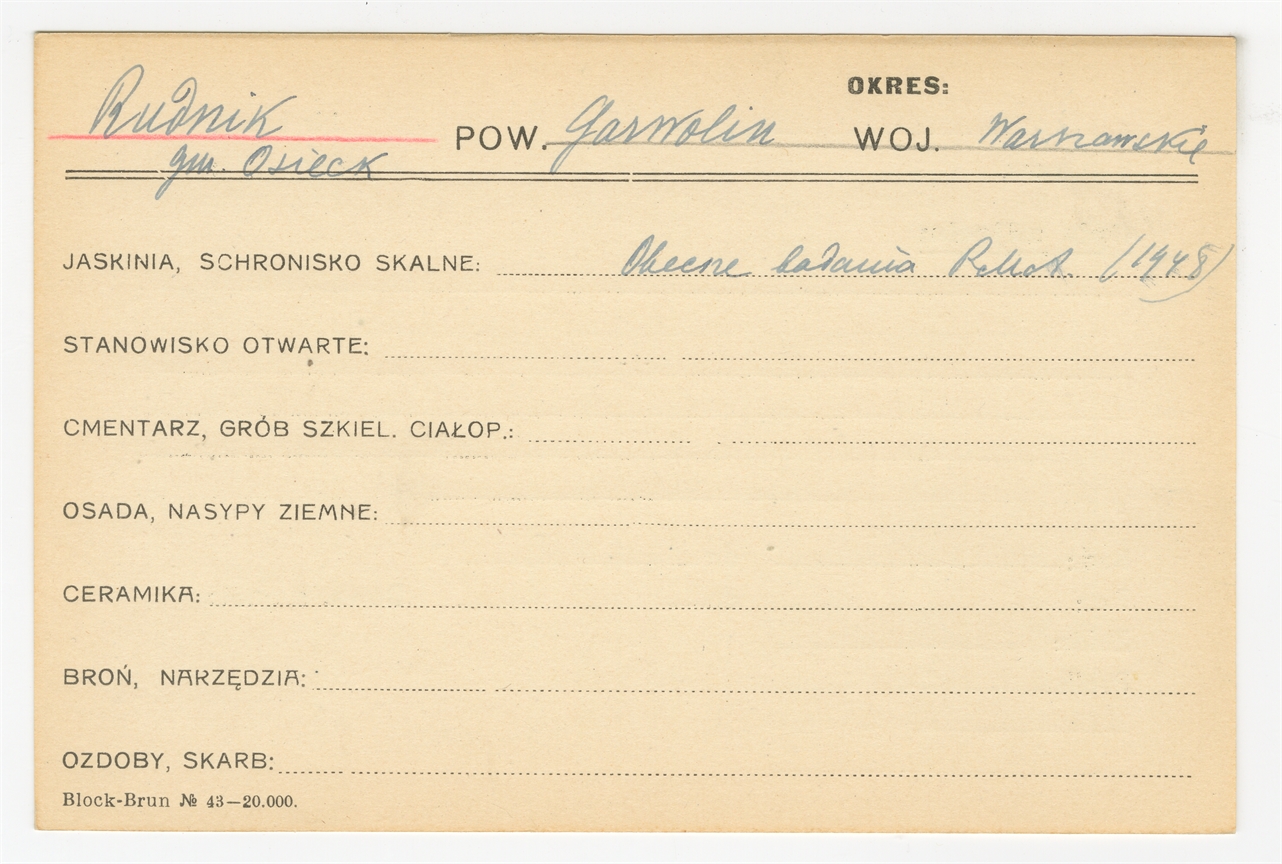 OKRES:
Rudnik POW. Garwolin WOJ. Warszawskie
gm. Osieck
JASKINIA, SCHRONISKO SKALNE: Obecne badania (1948)
STANOWISKO OTWARTE:
CMENTARZ, GRÓB SZKIEL. CIAŁOP.:
OSADA, NASYPY ZIEMNE:
CERAMIKA:
BROŃ, NARZĘDZIA:
OZDOBY, SKARB:
Block-Brun № 43—20.000.